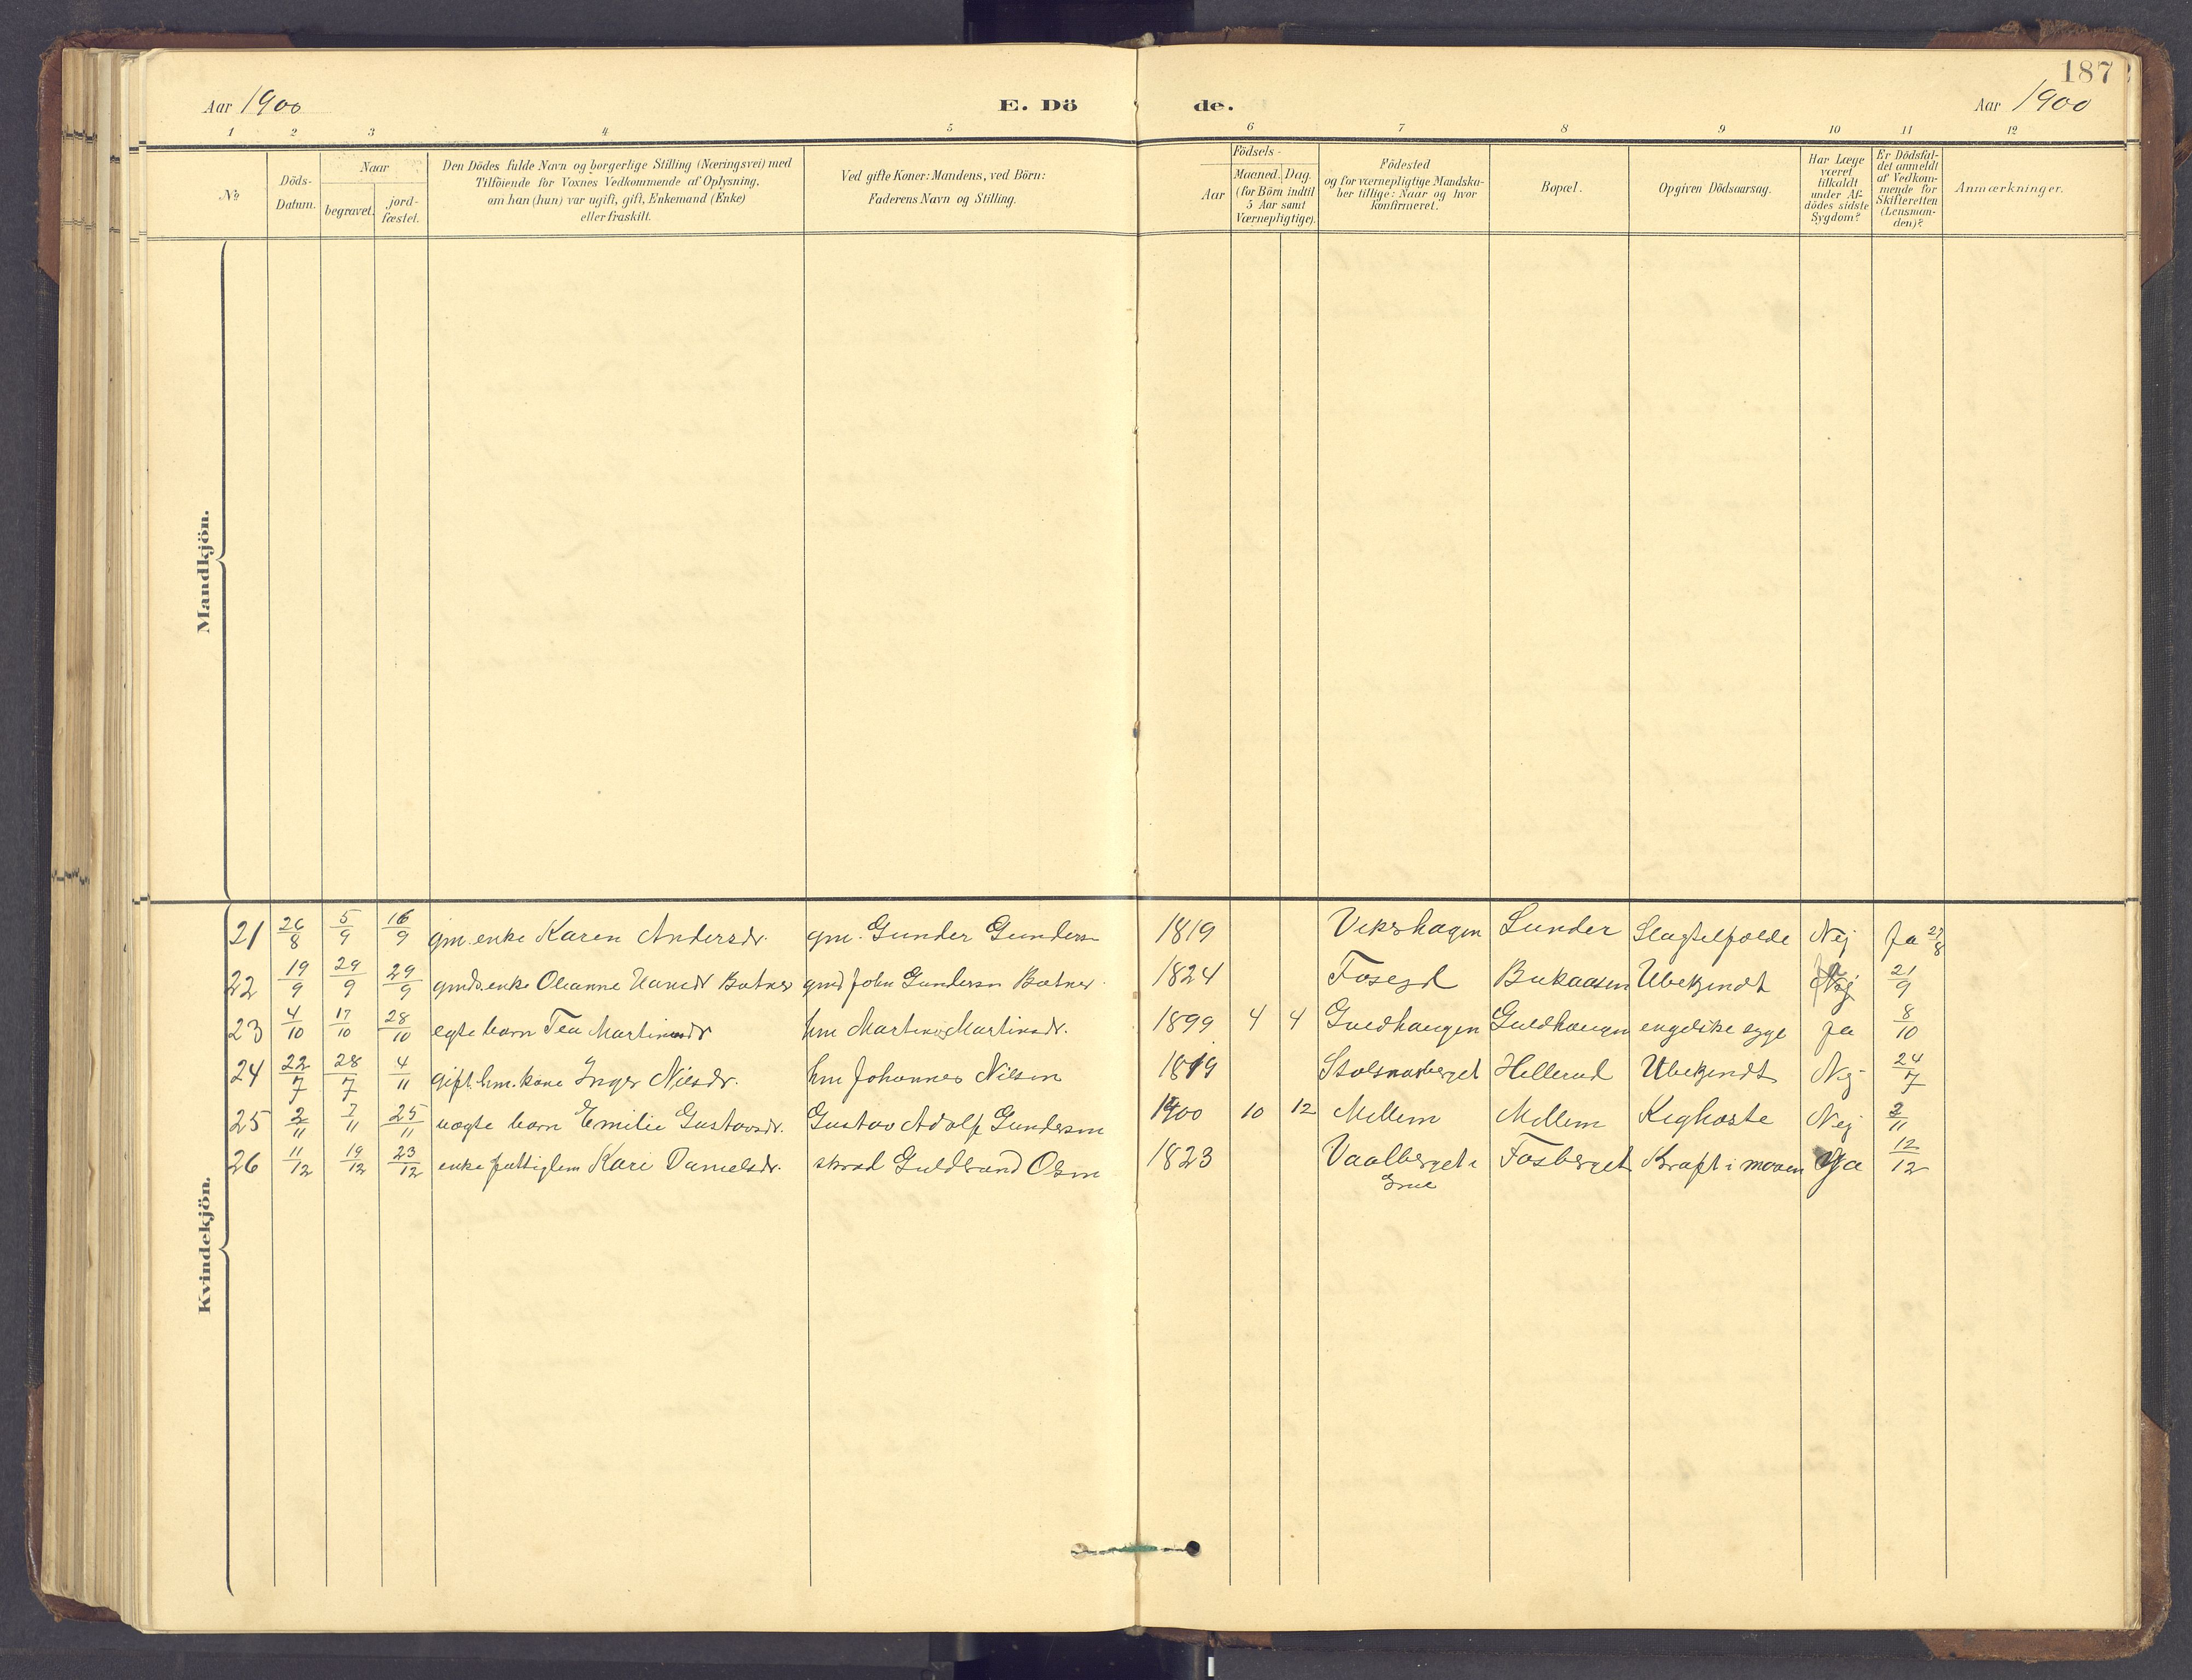 187
Aar 1900 E. Dö de. Aar 1900
1 2 3 4 5 6 7 8 9 10 11 12
No
Döds-Datum.
Naar
begravet.
jord-fæstet.
Den Dödes fulde Navn og borgerlige Stilling (Næringsvei) med
Tilföiende for Voxnes Vedkommende af Oplysning.
om han (hun) var ugift, gift, Enkemand (Enke)
eller fraskilt.
Ved gifte Koner: Mandens, ved Börn:
Faderens Navn og Stilling.
Födsels-
Aar
Maaned. Dag.
(for Börn indtil
5 Aar samt
Værnepligtige).
Födested
og for værnepligtige Mandska-
ber tillige: Naar og hvor
konfirmeret.
Bopæl.
Opgiven Dödsaarsag.
Har Læge
været
tilkaldt
under Af-
dödes sidste
Sygdom?
Er Dödsfal-
det anmeldt
af Vedkom-
mende for
Skifteretten
(Lensman-
den)?
Anmærkninger.
Mandkjön.
Kvindekjön.
21 26/8 5/9 16/9 gm. enke Karen Andersdr. gm. Gunder Gundersn 1819 Vikshagen Lunder Slagtelfælde Nej Ja 27/8
22 19/9 29/9 29/9 gmds. enke Oleanne Botner gmd John Gundersn Botner 1824 Foseyd Bukaasen Ubekjendt 21/9
23 4/10 17/10 28/10 egte barn Tea Martinsdr hm Martinus Martinsdr. 1899 4 4 Guldhaugen Guldhaugen engelske syge Ja 8/10
24 22/7 28/7 4/11 gift. hm. kone Inger Nilsdr. hm Johannes Nilsen 1819 Hellerud Ubekjendt Nej 24/7
25 2/11 7/11 25/11 uægte barn Emilie Gustavsdr. Gustav Adolf Gundersen 1900 10 12 Mellem Mellem Kighoste Nej 2/11
26 11/12 19/12 23/12 enke fattiglem Kari Danielsdr. skræd Guldbrand Olsen 1823 Vaalberget i Fosberget Kræft i maven Ja 12/12
Grue